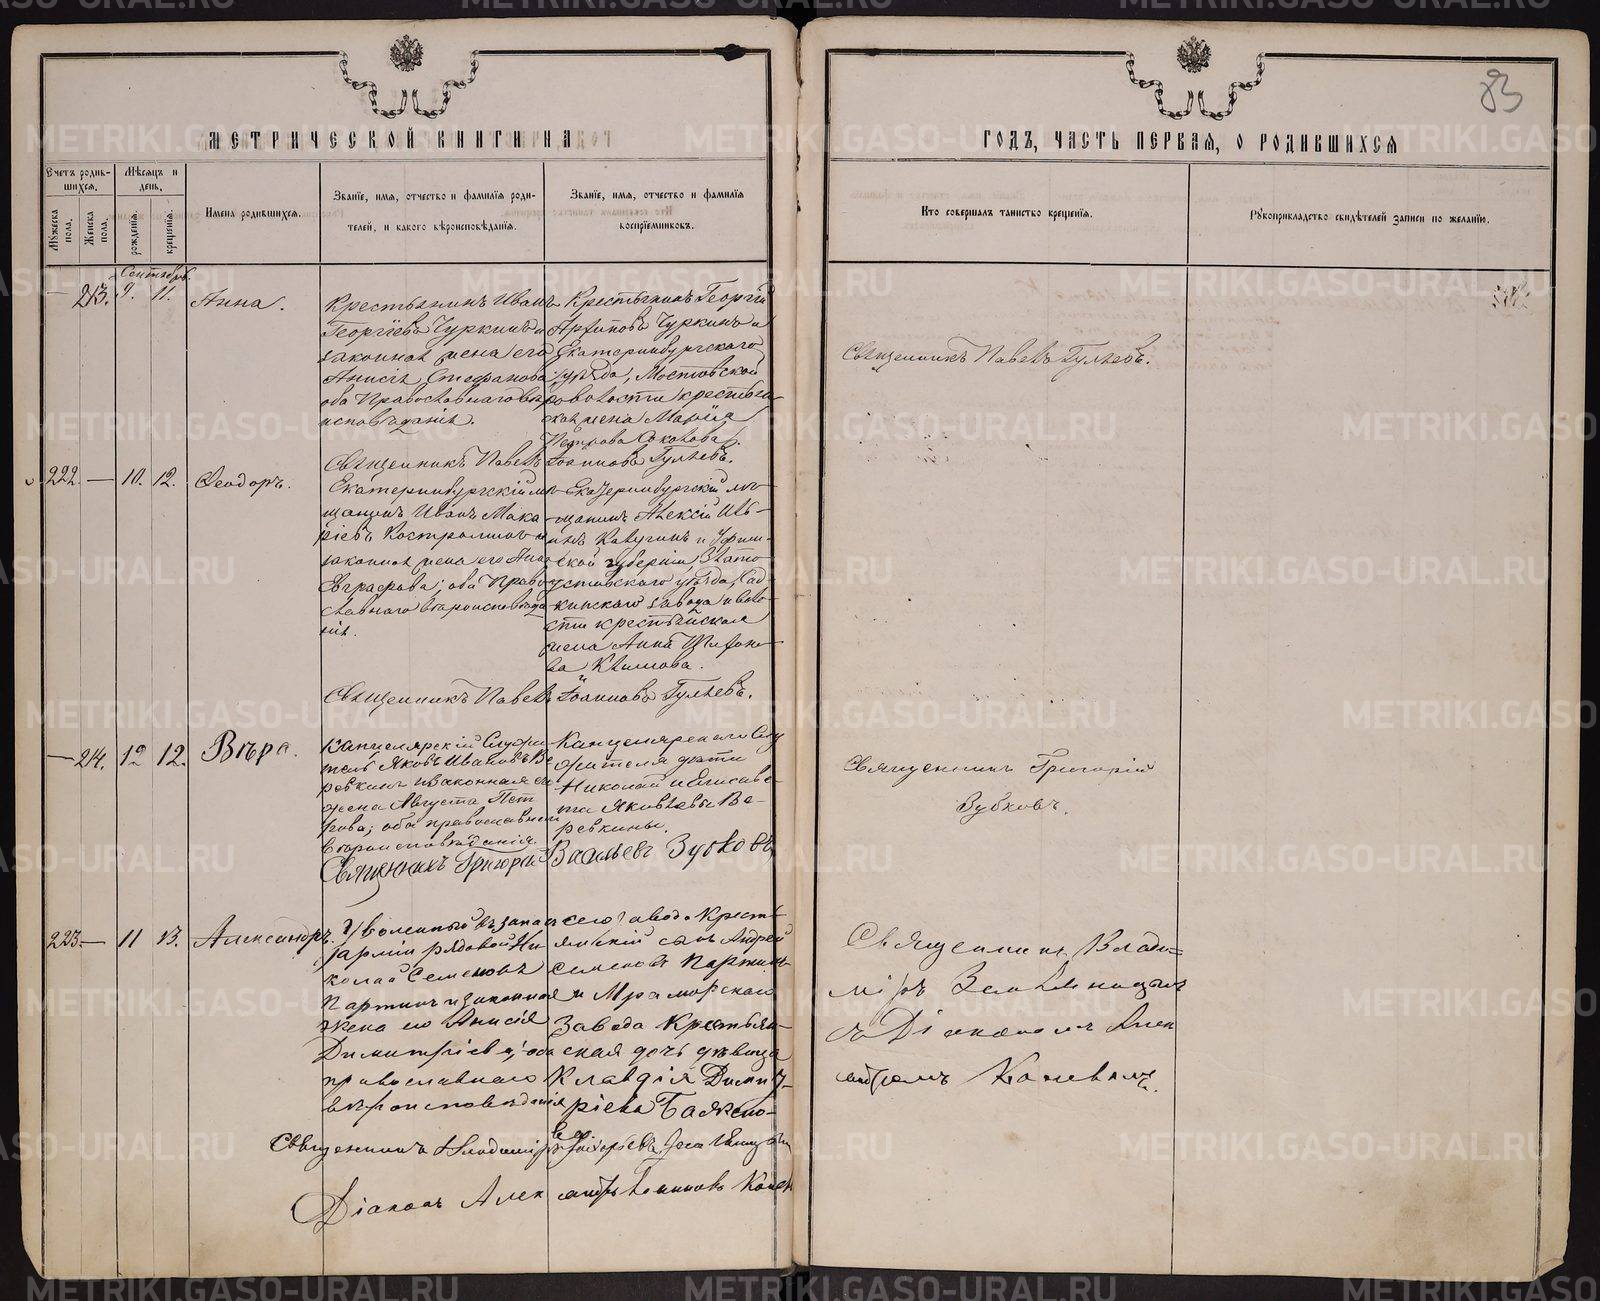 83
МЕТРИЧЕСКОЙ КНИГИ НА
ГОДЪ, ЧАСТЬ ПЕРВАЯ, О РОДИВШИХСЯ
Счетъ родив-
шихся.
Мѣсяцъ и
день.
Мужеска
пола.
Женска
пола.
рожденія.
крещенія.
Имена родившихся.
Званіе, имя, отчество и фамилія роди-
телей, и какого вѣроисповѣданія.
Званіе, имя, отчество и фамилія
воспріемниковъ.
Кто совершалъ таинство крещенія.
Рукоприкладство свидѣтелей записи по желанію.
Сентябрь.
— 213. 9. 11. Анна.
Крестьянинъ Иванъ
Георгіевъ Чуркинъ и
законная жена его
Анисія Стефанова
оба Православнаго вѣ
исповѣданія.
Крестьянинъ Георгій
Архиповъ Чуркинъ и
Екатеринбургскаго
уѣзда, Мостовской
волости крестьян
ская жена Марія
Петрова Соколова.
Священникъ Павелъ Гуляевъ.
Священникъ Павелъ Іоанновъ Гуляевъ.
222. — 10. 12. Ѳеодоръ.
Екатеринбургскій мѣ
щанинъ Иванъ Мака
ріевъ Костроминъ и
законная жена его Анна
Евграфова; оба Право
славнаго вѣроисповѣда
нія.
Екатеринбургскій мѣ
щанинъ Алексій Иль-
инъ Калугинъ и Уфим
ской губерніи, Злато
устовскаго уѣзда,
кинскаго завода и воло
сти крестьянская
жена Анна
ва Климова.
Священникъ Павелъ Іоанновъ Гуляевъ.
— 214. 12 12. Вѣра.
Канцелярскій Служи
тель Яковъ Ивановъ Ве
ревкинъ и законная его
жена Августа Пет
рова; оба православнаго
вѣроисповѣданія.
Канцелярскаго Слу
жителя дѣти
Николай и Елисаве
та Яковлевы Ве-
ревкины.
Священникъ Григорій
Зубковъ.
Священникъ Григорій Васильевъ Зубковъ
223 — 11 13. Александръ.
Уволенный въ запасъ
арміи рядовой Ни
колай Семеновъ
Партинъ и законная
жена его Анисія
Димитріева; оба
православнаго
вѣроисповѣданія
сего завода Кресть
янскій сынъ Андрей
Семеновъ Партинъ
и Мраморскаго
Завода Крестьян-
ская дочь дѣвица
Клавдія Димит-
ріева Бажено-
ва
Священникъ Влади-
міръ Земляницынъ
съ Діакономъ Алек
сандромъ Коневымъ.
Священникъ Владиміръ Григорьевъ Земляницынъ
Діаконъ Александръ Іоанновъ Конев
METRIKI.GASO-URAL.RU